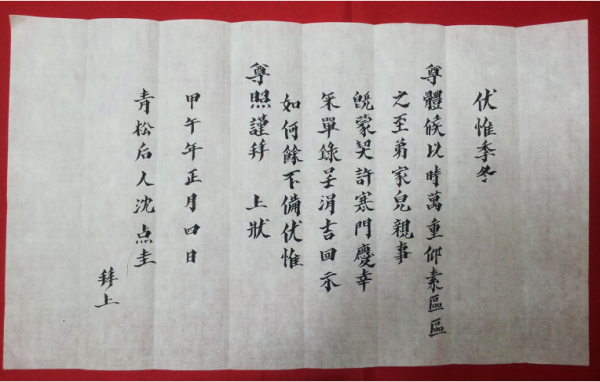 伏惟季冬
尊體候以時萬重仰素區區
之至弟家兒親事
旣蒙契許寒門慶幸
采單錄呈涓吉回示
如何餘不備伏惟
尊照謹拜 上狀
甲午年正月四日
青松后人沈点圭
拜上